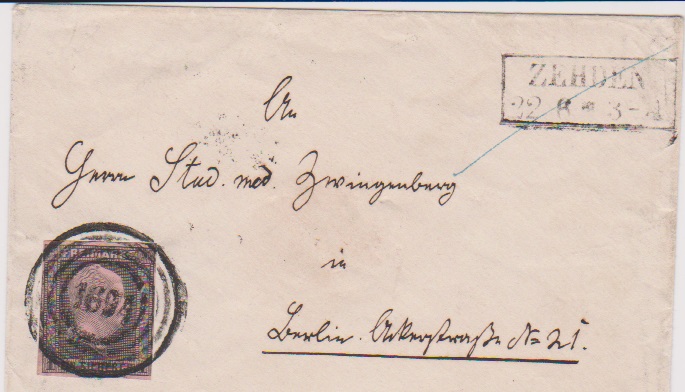 ZEHDEN
22 6 * 3-4
An
Herrn Stud. med. Zwingenberg
1694
in
Berlin. Ackerstraße No 21.